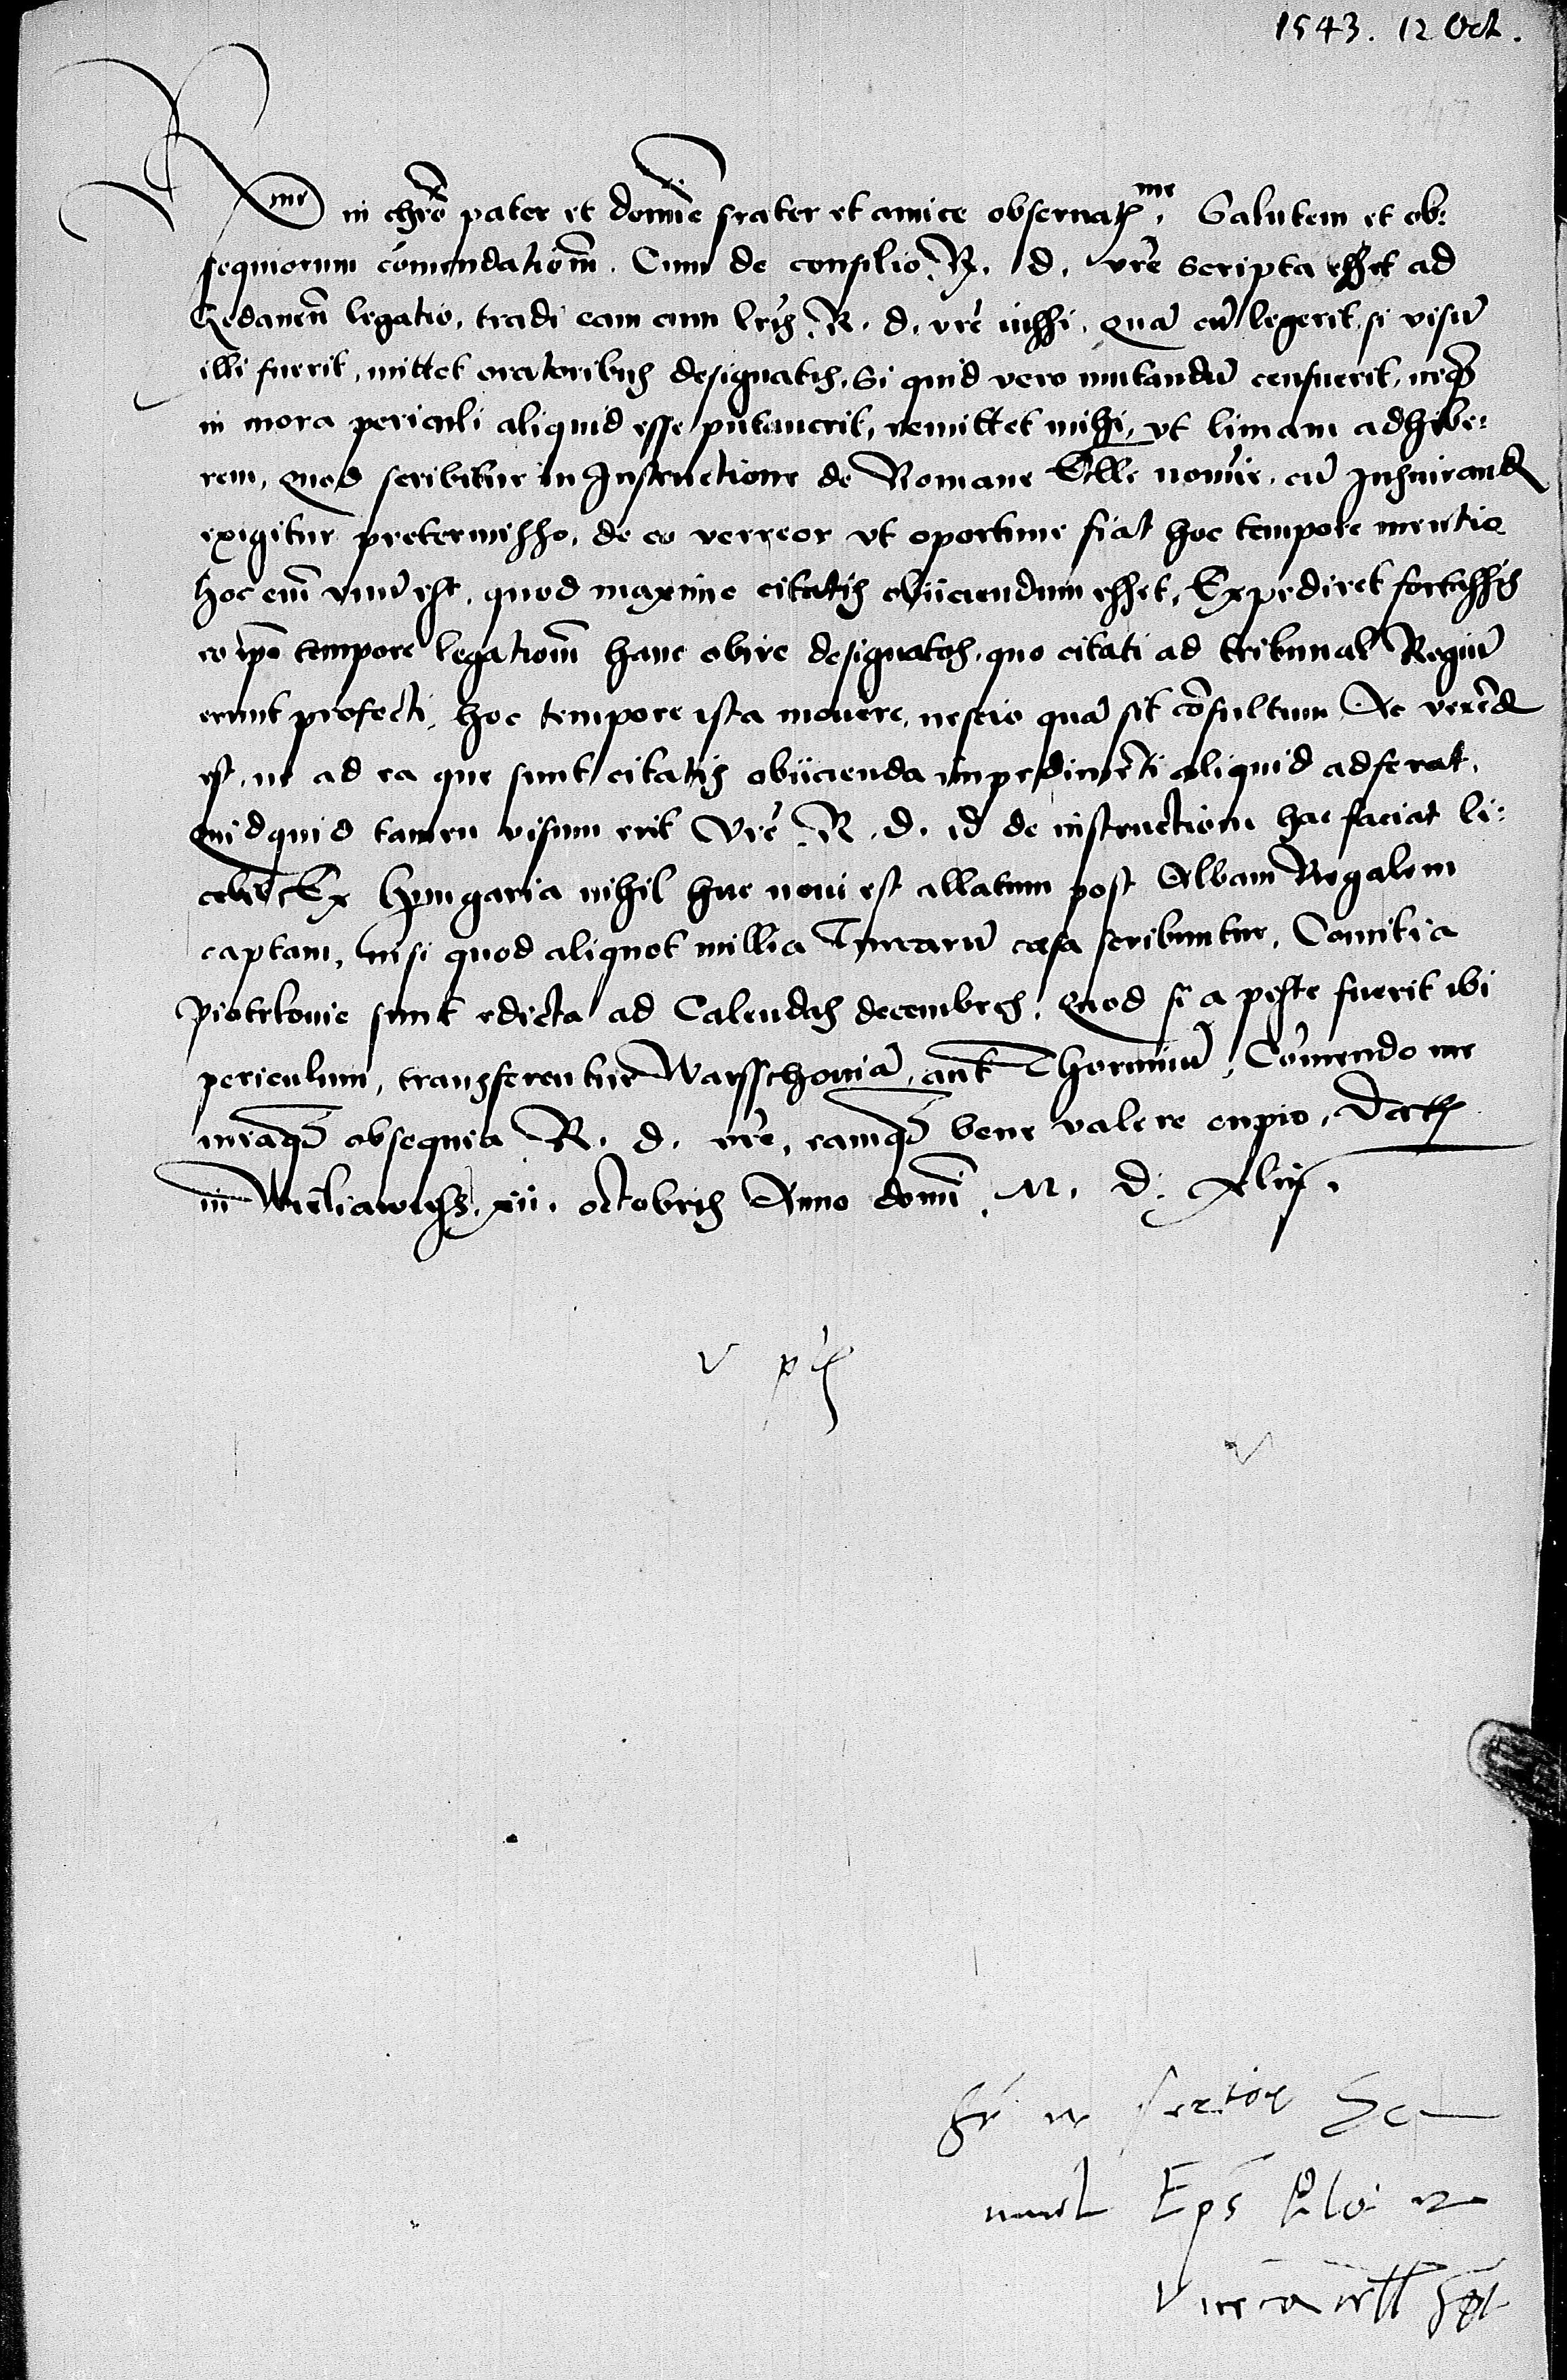 1543. 12 Oct.
Rme in chro pater et domine frater et amice observatme. Salutem et ob:
sequiorum comendationem. Cum de consilio R. d. vre scripta esset ad
Gedanen legatio, tradi eam cum lris R. d. vre iussi. qua cum legerit, si visum
illi fuerit, mittet oratoribus designatis. Si quid vero mutandum censuerit, neque
in mora periculi aliquid esse putaverit, remittet mihi, vt limam adhibe:
rem, quod scribitur in Instructione de Romane nomine, cum Iusiurand
exigitur pretermisso, de eo verreor vt oportune fiat hoc tempore mentio
hoc eni vnum est, quod maxime citatis obiiciendum esset, Expediret fortassis
eo ipso tempore legationem hanc obire designatos, quo citati ad tribunal Regium
erunt profecti, hoc tempore ista movere, nescio qua sit consultum Ac verend
est, ne ad ea que sunt citatis obiicienda impedimenti aliquid adferat.
quidquid tamen visum erit vre R. d. id de instructione hac faciat li:
cebit Ex Hungaria nihil huc novi est allatum post Albam Regalem
captam, nisi quod aliquot millia Turcarum cesa scribuntur, Comitia
Piotrkovie sunt edicta ad Calendas decembres. quod si a peste fuerit ibi
periculum, transferentur Warsschoviam, aut Thorunium, Comendo me
meaque obsequia R. d. vre, eamque bene valere cupio, Dat
in Wieliawyess. xii. octobris Anno domi. M. D. xliij.
V
fr
Eps